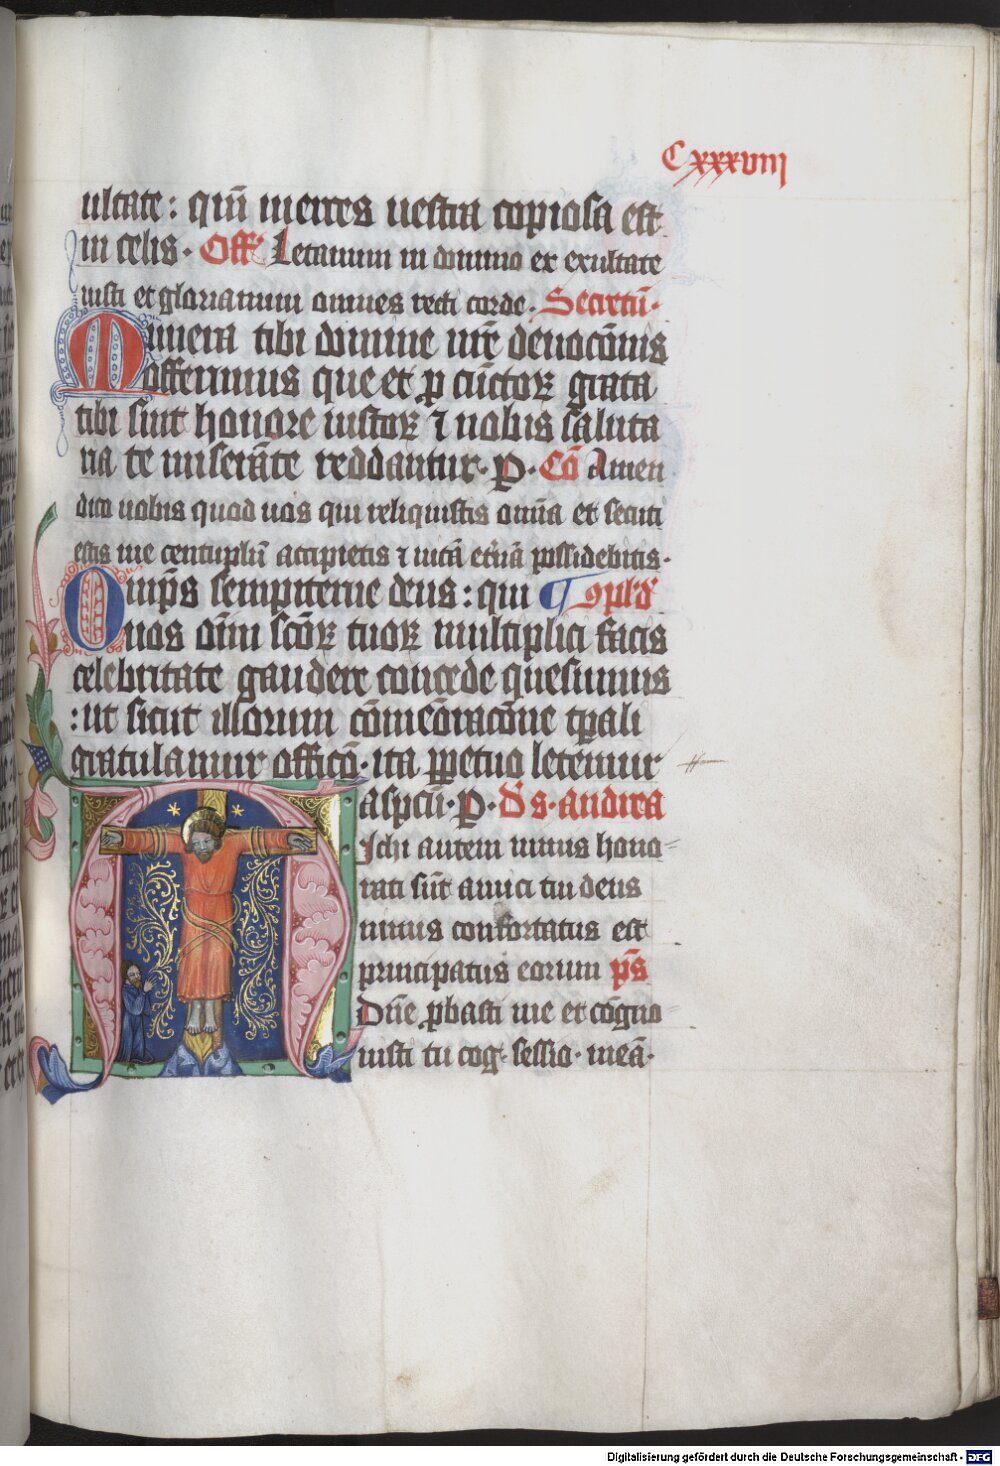 Cxxxviij
ultate: qm̄ merces uestra copiosa est
in celis. Off. Letamini in domino et exultate
iusti et gloriamini omnes recti corde. Secretū.
Munera tibi domine nr̄e deuocōnis
offerimus que et ꝓ cūctoꝝ grata
tibi sint honore iustoꝝ ⁊ nobis saluta
ria te miserāte reddantur. P. Cō Amen
dico uobis quod uos qui reliquistis omīa et secuti
estis me centuplū accipietis ⁊ uitā et̄nā possidebitis.
Omp̄s sempiterne deus: qui ¶ 9pl'd'
nos om̄i scōꝝ tuoꝝ multiplici facis
celebritate gaudere concede quesumus
: ut sicut illorum cōmeōracōne tp̄ali
gratulamur officō. ita ꝑpetuo letemur
aspcū. P. D' s. andrea
Michi autem nimis hono-
rati sūt amici tui deus
nimis confortatus est
principatus eorum p̄s
Dn̄e ꝓbasti me et cōgno-
uisti tu cog. sessio. meā.
Digitalisierung gefördert durch die Deutsche Forschungsgemeinschaft - DFG